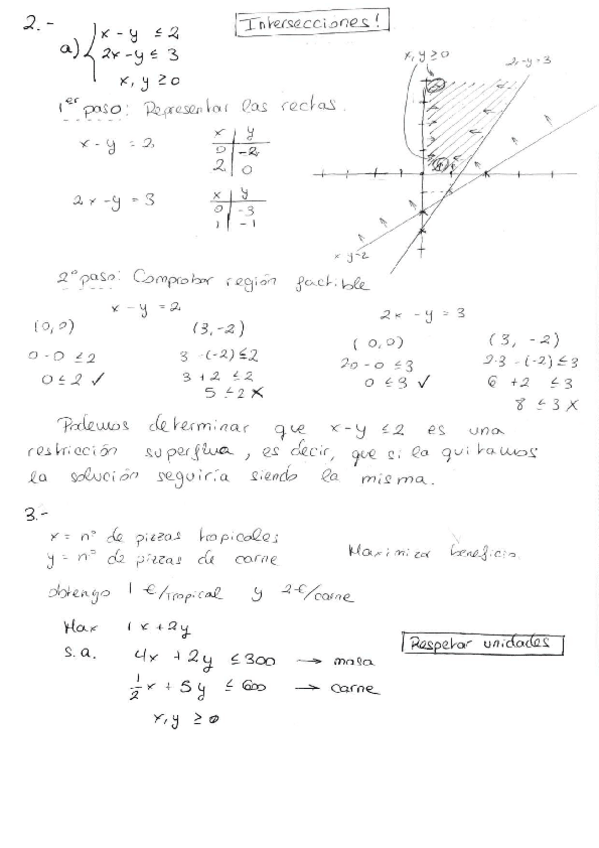 2.-
Intersecciones!
a) { x - y ≤ 2
2x - y ≤ 3
x, y ≥ 0
1er paso: Representar las rectas.
x - y = 2
x | y
0 | -2
2 | 0
2x - y = 3
x | y
0 | -3
1 | -1
x, y ≥ 0
2x-y=3
x-y=2
2º paso: Comprobar región factible
x - y = 2
2x - y = 3
(0,0) (3,-2)
0 - 0 ≤ 2 3 -(-2) ≤ 2
0 ≤ 2 ✓ 3 + 2 ≤ 2
5 ≤ 2 X
(0,0) (3, -2)
2·0 - 0 ≤ 3 2·3 -(-2) ≤ 3
0 ≤ 3 ✓ 6 + 2 ≤ 3
8 ≤ 3 X
Podemos determinar que x-y ≤ 2 es una
restricción superflua, es decir, que si la quitamos
la solución seguiría siendo la misma.
3.-
x = nº de pizzas tropicales
y = nº de pizzas de carne
Maximizar beneficio
obtengo 1 €/tropical y 2 €/carne
Max 1x + 2y
s.a. 4x + 2y ≤ 300 → masa
1/2 x + 5y ≤ 600 → carne
x, y ≥ 0
Respetar unidades